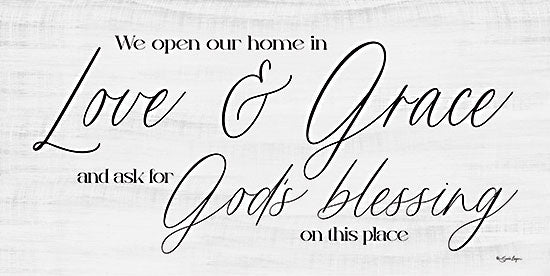 We open our home in
Love & Grace
and ask for
God's blessing
on this place